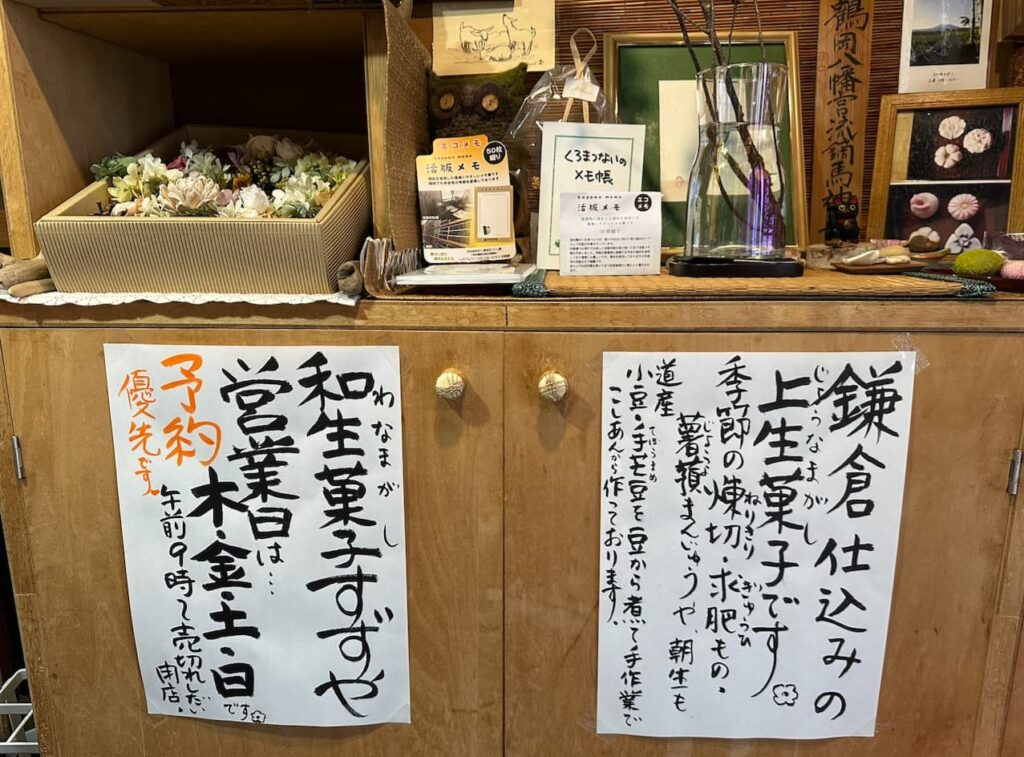 エコメモ
50枚綴り
kappan memo
活版メモ
くろまつないの
メモ帳
kappan memo
活版メモ
エコメモ
50枚綴り
鶴岡八幡宮流鏑馬
わなまがし
和生菓子すずや
営業日は…
木・金・土・日です
予約
優先です。
午前9時〜売切れしだい
閉店。
鎌倉仕込みの
じょうなまがし
上生菓子です
ねりきり ぎゅうひ
季節の煉切・求肥もの・
じょうよ
薯蕷まんじゅうや、朝生も
道産
てぼうまめ
小豆・手芒豆を豆から煮て手作業で
こしあんから作っております。